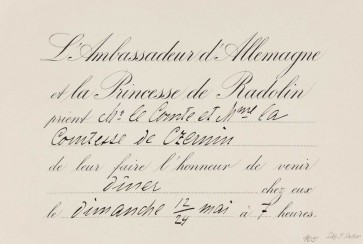 L'Ambassadeur d'Allemagne
et la Princesse de Radolin
prient Mr le Comte et Mme la
Comtesse de Czernin
de leur faire l'honneur de venir
dîner chez eux
le dimanche 12/24 mai à 7 heures.